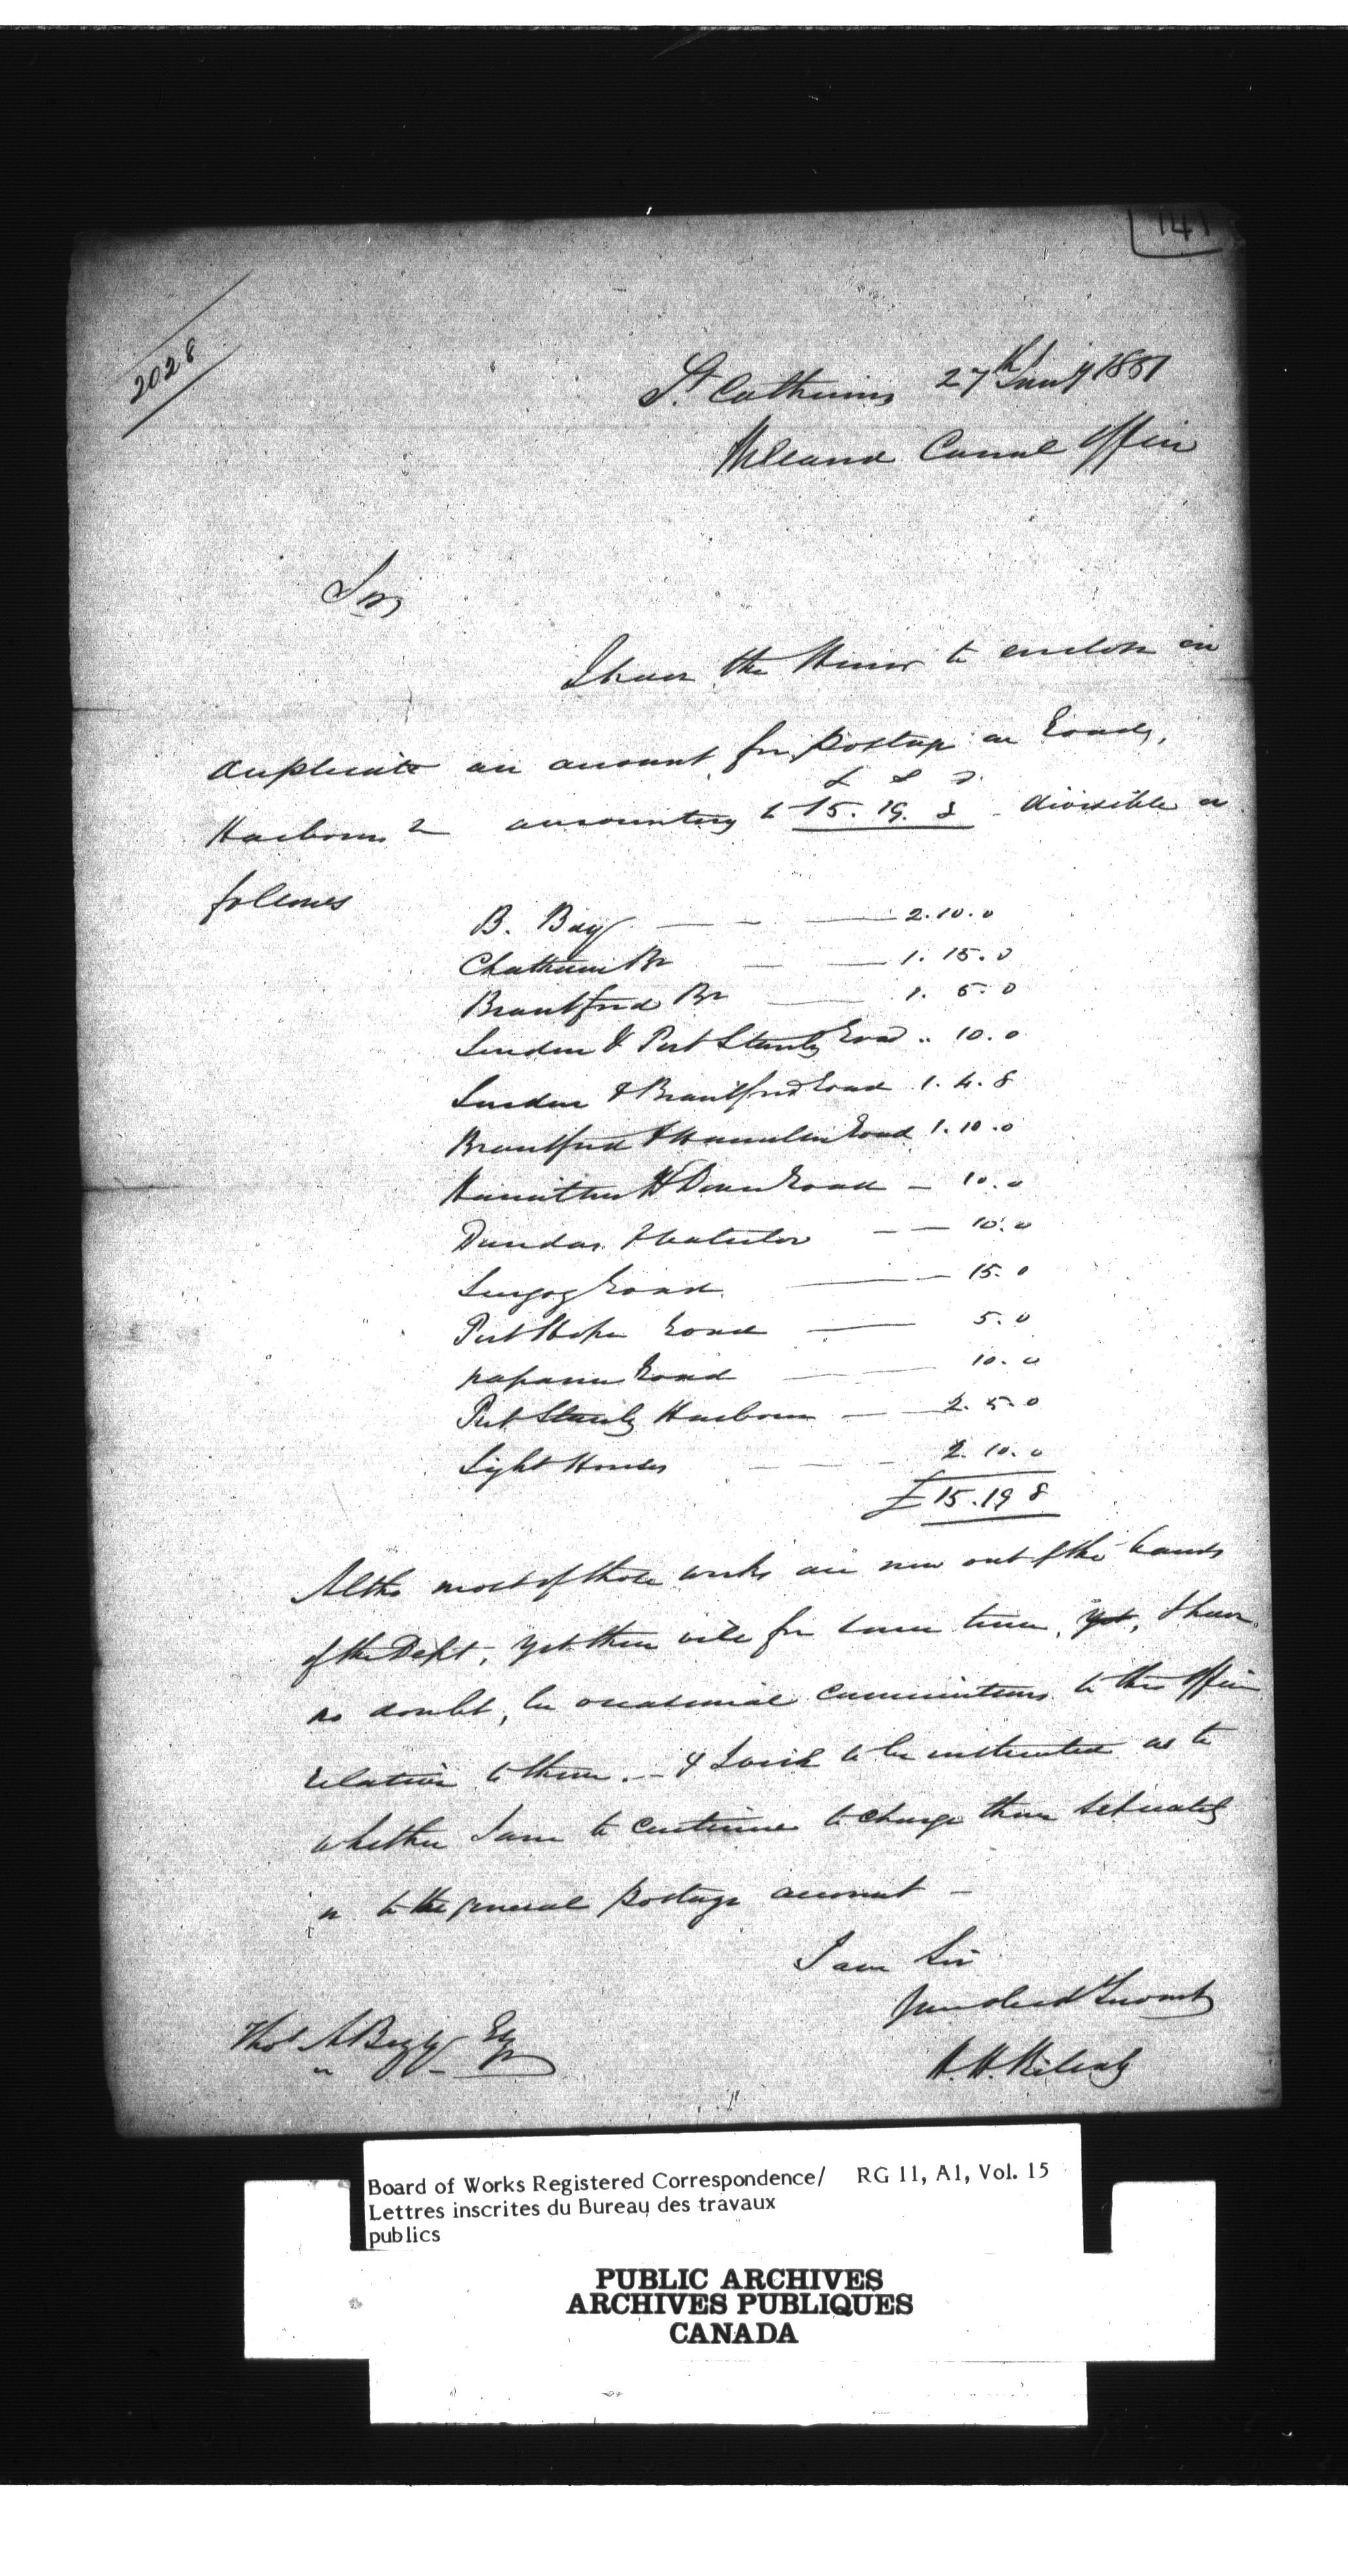 141
2028
St. Catherines 27th Jany 1851
Welland Canal Office
Sir
I have the Honor to enclose in
duplicate an account for Postage on Roads,
£ S D
Harbours & amounting to 15. 19. 8 divisible as
follows
B. Bay 2. 10. 0
Chatham Br 1. 15. 0
Brantford Br 1. 5. 0
London & Port Stanly Road " 10. 0
London & Brantford Road 1. 4. 8
Brantford & Hamilton Road 1. 10. 0
Hamilton & Dover Road 10. 0
Dundas & Waterloo 10. 0
Scugog Road 15. 0
Port Hope Road 5. 0
Napanee Road 10. 0
Port Stanly Harbour 2. 5. 0
Light Houses 2. 10. 0
£ 15. 19 8
Altho most of those works are now out of the hands
of the Dept, yet there will for some time, yet, I have
no doubt, be occasional communications to this office
relative to them. — & I wish to be instructed as to
whether I am to continue to charge them separately
or to the general postage account —
I am Sir
your obedt Servant
H. H. Killaly
Thos A Begly Esq
Board of Works Registered Correspondence/ RG 11, A1, Vol. 15
Lettres inscrites du Bureau des travaux
publics
PUBLIC ARCHIVES
ARCHIVES PUBLIQUES
CANADA